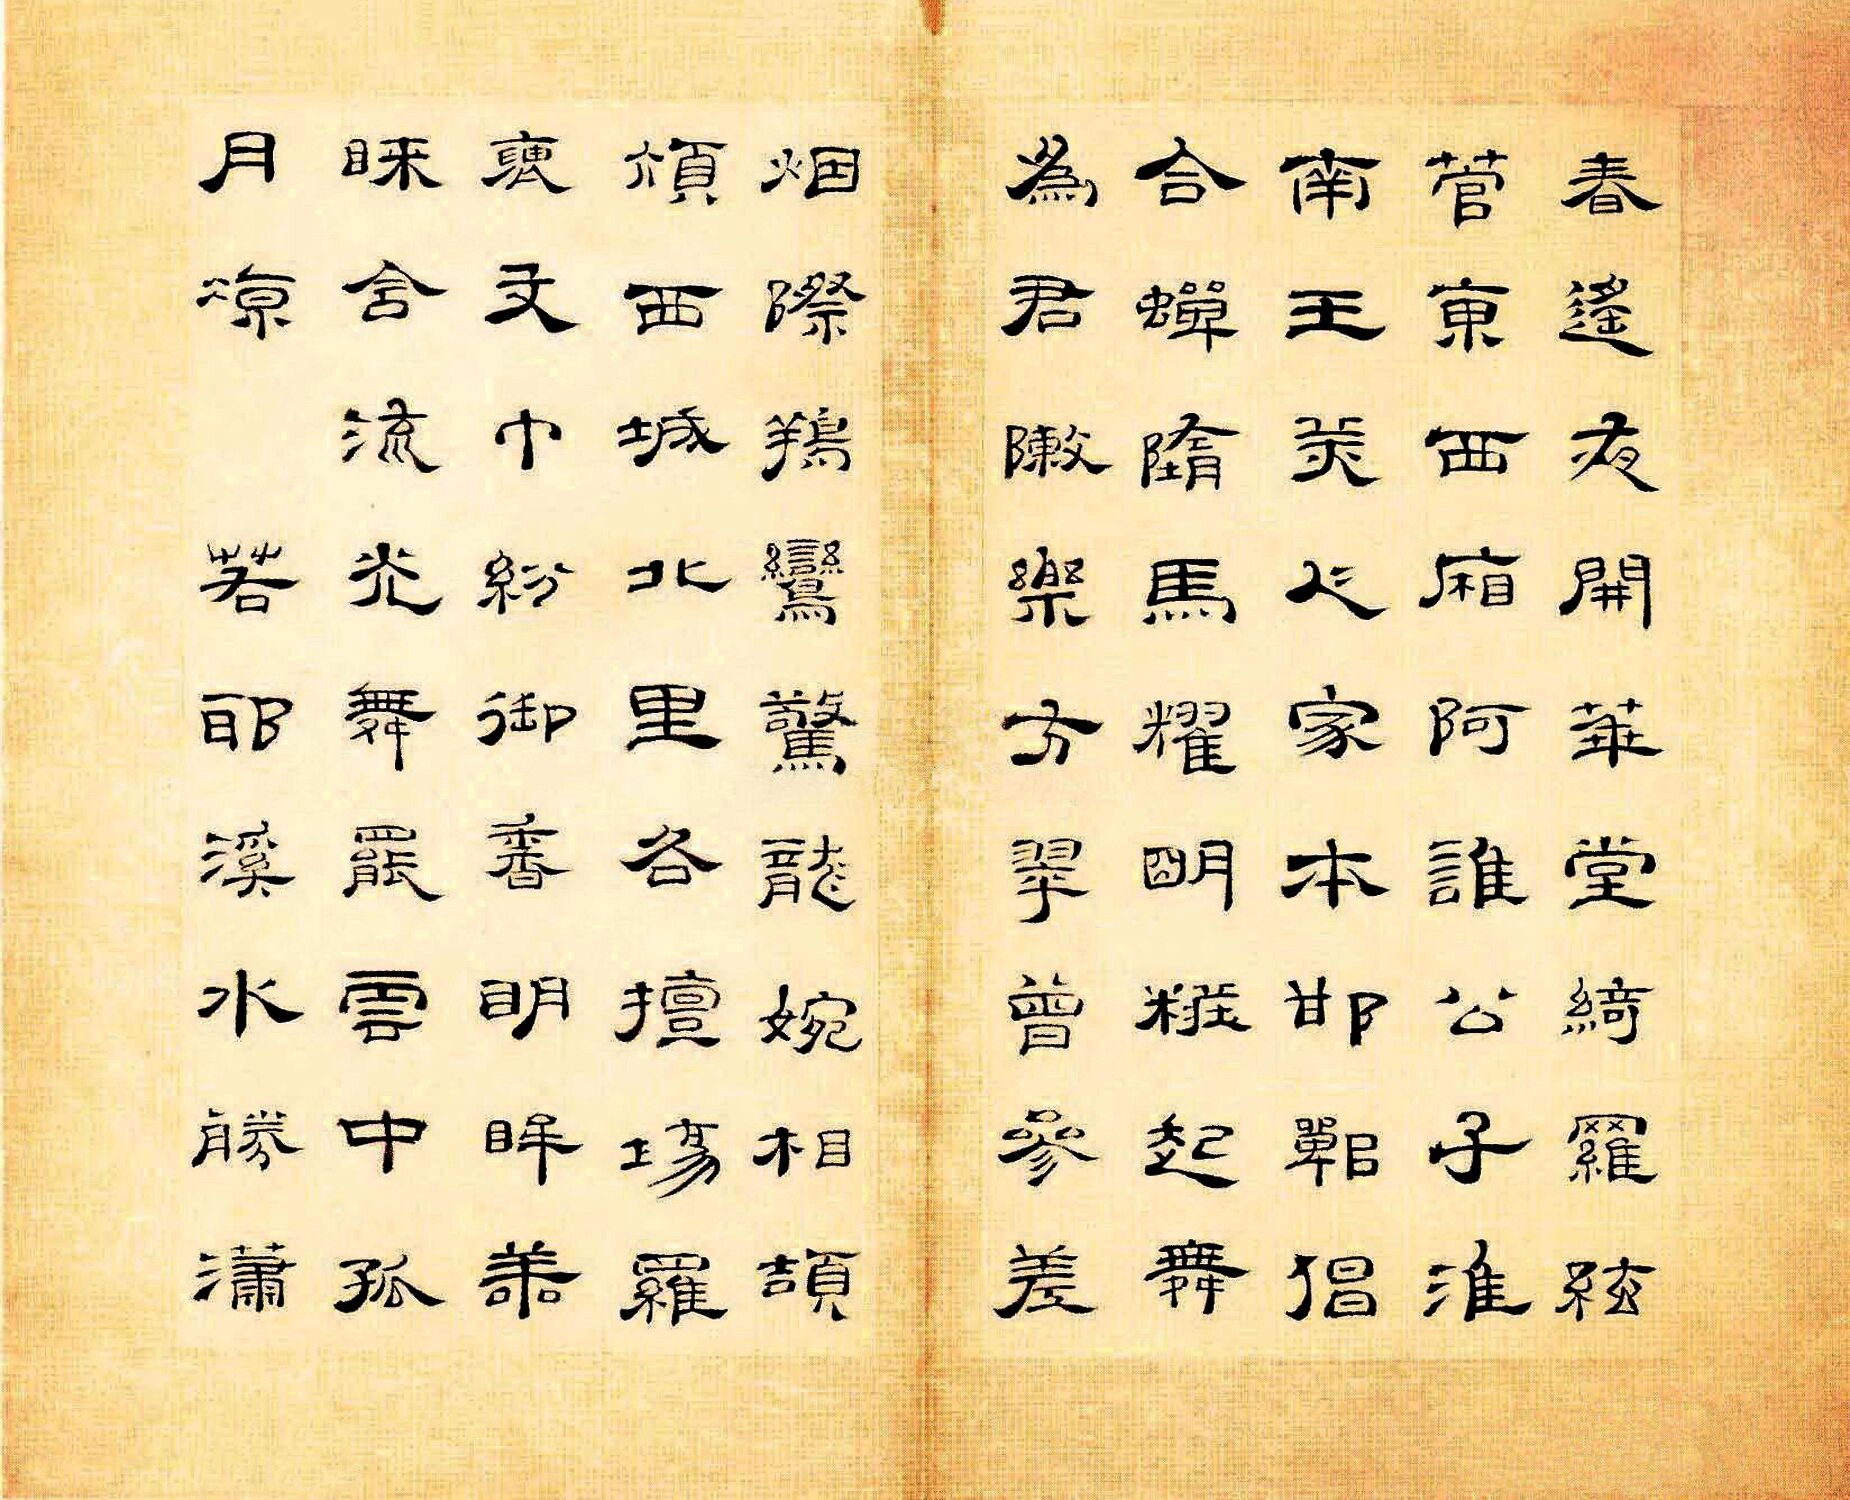 春遙夜開華堂綺羅絃
管東西廂阿誰公子淮
南王美人家本邯鄲倡
合蟬墮馬耀明糚起舞
為君敶樂方翠曾參差
烟際鴹鸞驚龍婉相頡
頏西城北里各擅場羅
褏文巾紛御香明眸善
睞含流光舞罷雲中孤
月凉 若耶溪水勝瀟